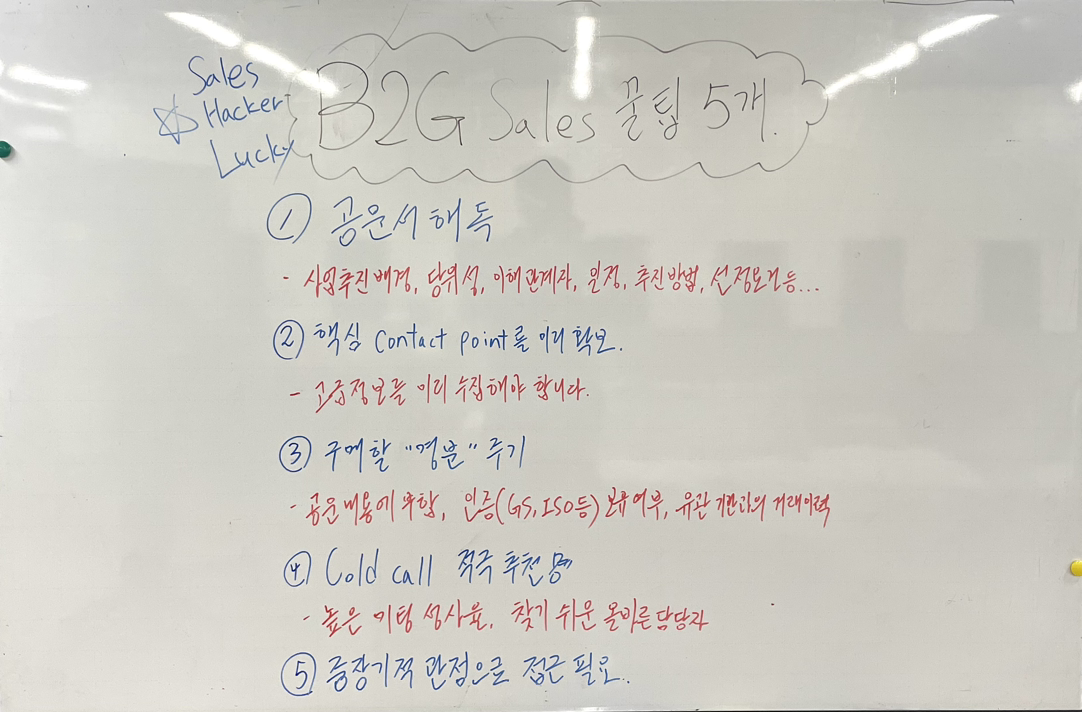 Sales
Hacker
Lucky
B2G Sales 꿀팁 5개.
① 공문서 해독
- 사업추진배경, 당위성, 이해관계자, 일정, 추진방법, 선정요건 등...
② 핵심 Contact point를 미리 확보.
- 고급정보를 미리 수집해야 합니다.
③ 구매할 "명분" 주기
- 공문내용에 부합, 인증(GS, ISO등) 보유여부, 유관기관과의 거래이력
④ Cold call 적극 추천
- 높은 미팅 성사율, 찾기 쉬운 올바른 담당자
⑤ 중장기적 관점으로 접근 필요.